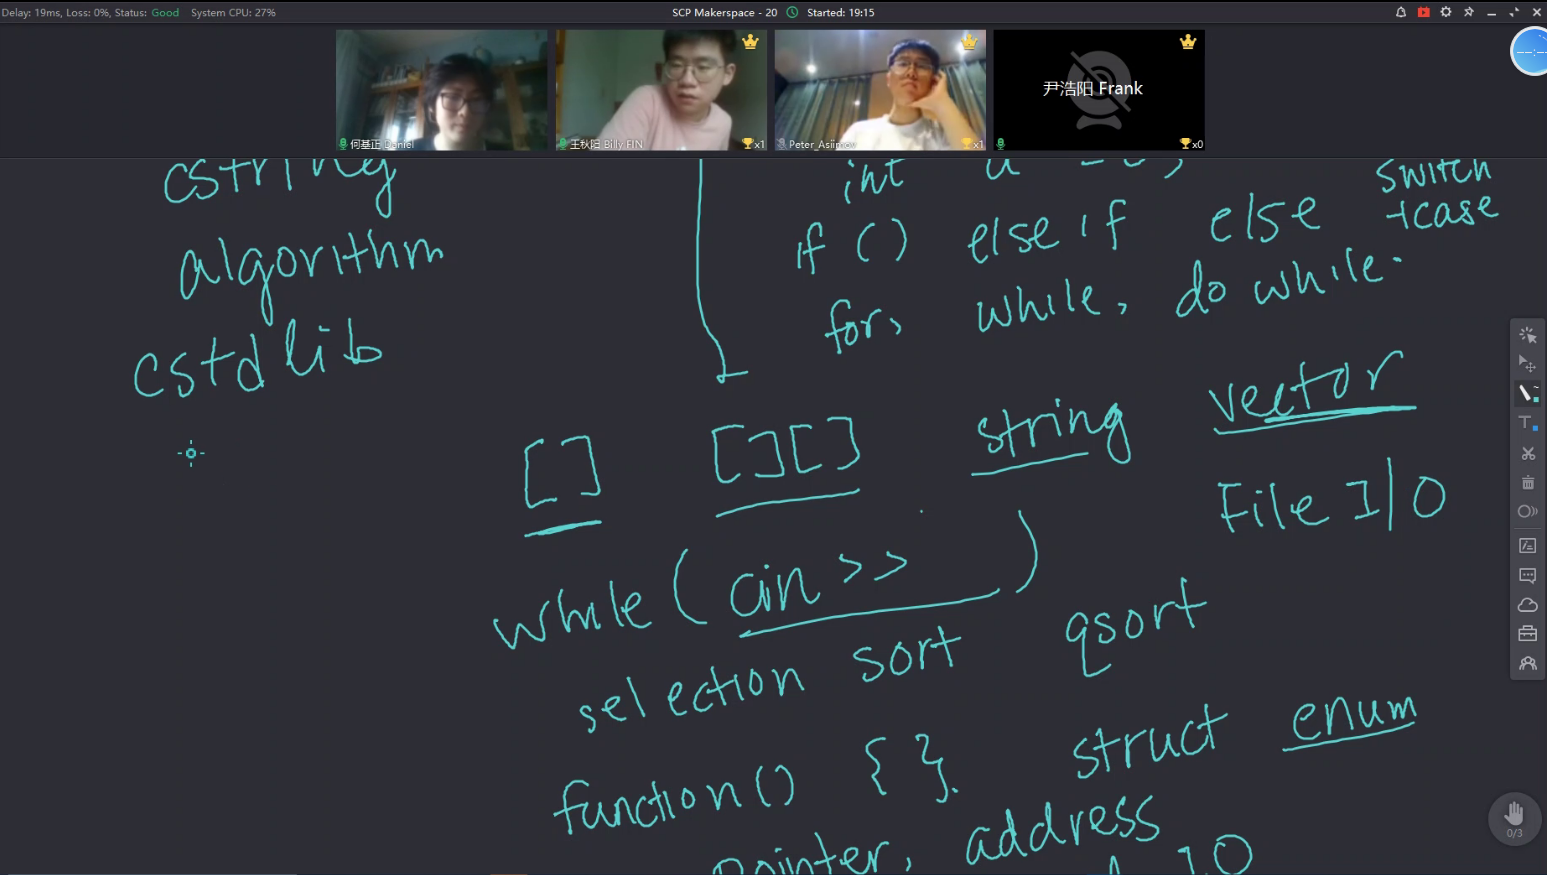 Delay: 19ms, Loss: 0%, Status: Good System CPU: 27%
SCP Makerspace - 20 Started: 19:15
何基正 Daniel
王秋阳 Billy FIN
x1
Peter_Asiimov
x1
尹浩阳 Frank
x0
cstring
algorithm
cstdlib
int a
if () else if else switch
+case
for, while, do while.
[] [][] string vector
File I/O
while (cin >> )
selection sort qsort
function() { }. struct enum
pointer, address
10
0/3